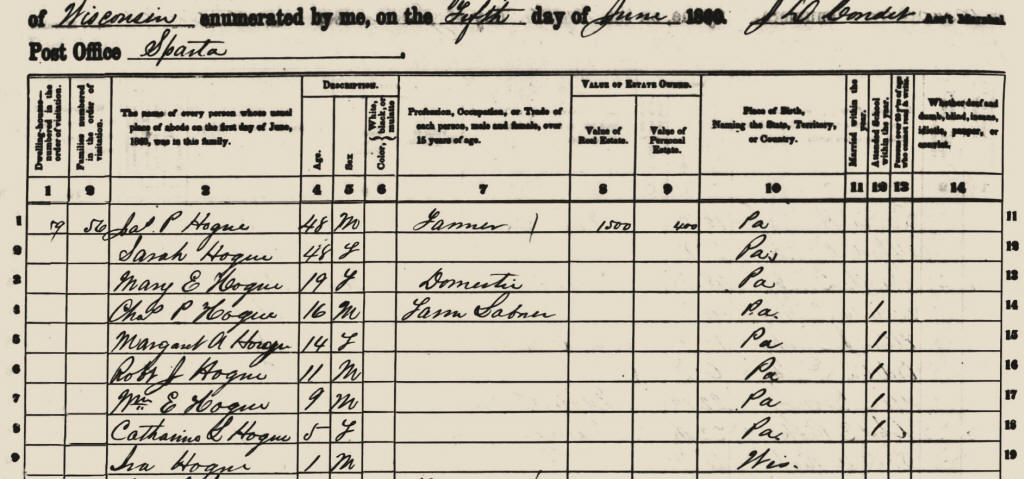 of Wisconsin enumerated by me, on the Fifth day of June 1860. Ass't Marshal
Post Office Sparta.
Dwelling-houses—numbered in the order of visitation.
Families numbered in the order of visitation.
The name of every person whose usual place of abode on the first day of June, 1860, was in this family.
DESCRIPTION.
Age.
Sex
Color, { White, black, or mulatto
Profession, Occupation, or Trade of each person, male and female, over 15 years of age.
VALUE OF ESTATE OWNED.
Value of Real Estate.
Value of Personal Estate.
Place of Birth, Naming the State, Territory, or Country.
Married within the year.
Attended School within the year.
Persons over 20 y'rs of age who cannot read & write.
Whether deaf and dumb, blind, insane, idiotic, pauper, or convict.
1 2 3 4 5 6 7 8 9 10 11 12 13 14
1 56 Jas P Hogue 48 M Farmer 1500 400 Pa 11
2 Sarah Hogue 48 F Pa 12
3 Mary E Hogue 19 F Domestic Pa 13
4 Chas P Hogue 16 M Farm Labner Pa. 1 14
5 Margaret A Hogue 14 F Pa 1 15
6 Robt J Hogue 11 M Pa 1 16
7 Wm E Hogue 9 M Pa 1 17
8 Catharine L Hogue 5 F Pa 1 18
9 Ira Hogue 1 M Wis. 19